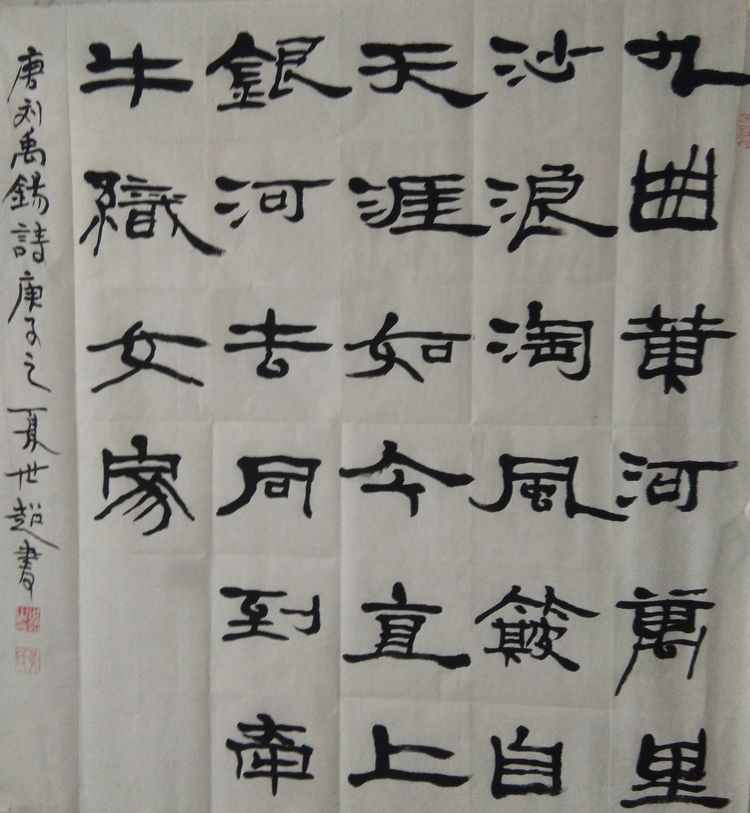 九曲黄河萬里
沙浪淘風簸自
天涯如今直上
銀河去同到牽
牛織女家
唐刘禹錫詩庚子之夏世超書